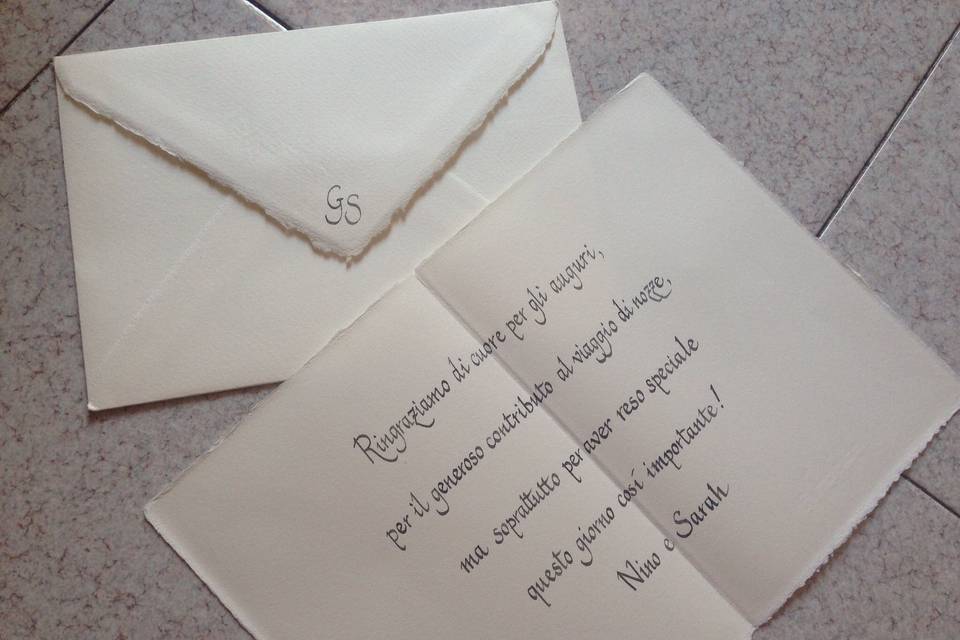 GS
Ringraziamo di cuore per gli auguri,
per il generoso contributo al viaggio di nozze,
ma soprattutto per aver reso speciale
questo giorno così importante!
Nino e Sarah